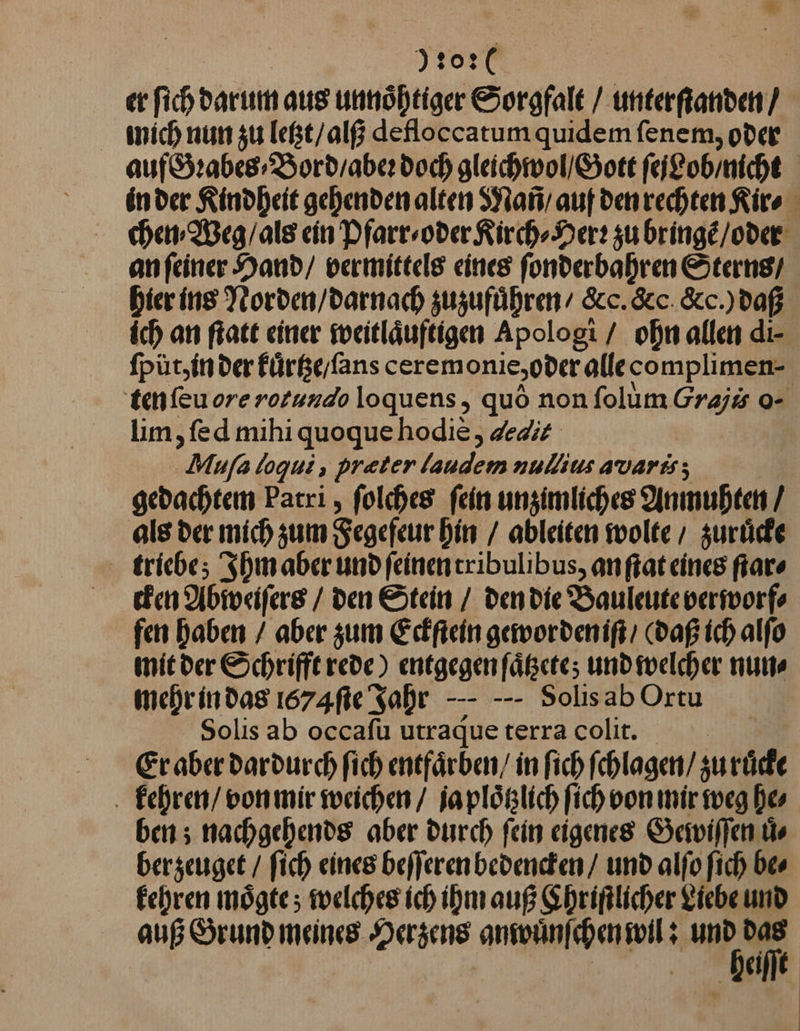 ):o:(
er ſich darum aus unnoͤhtiger Sorgfalt / unterſtanden /
mich nun zu letzt / alß defloccatum quidem ſenem, oder
auf Grabes⸗Bord / aber doch gleichwol / Gott ſei Lob / nicht
in der Kindheit gehenden alten Mañ / auf den rechten Kir⸗
chen⸗Weg / als ein Pfarr⸗oder Kirch⸗Herr zu bringẽ / oder
an ſeiner Hand / vermittels eines ſonderbahren Sterns /
hier ins Norden / darnach zuzufuͤhren / &c. &c. &c.) daß
ich an ſtatt einer weitlaͤuftigen Apologi / ohn allen di-
ſpüt, in der kuͤrtze / ſans ceremonie, oder alle complimen-
ten ſeu ore rotundo loquens, quô non ſolùm Grajis o-
lim, ſed mihi quoque hodiè, dedit
Muſa loqui, præter laudem nullius avaris;
gedachtem Patri, ſolches ſein unzimliches Anmuhten /
als der mich zum Fegefeur hin / ableiten wolte / zuruͤcke
triebe; Ihm aber und ſeinen tribulibus, an ſtat eines ſtar⸗
cken Abweiſers / den Stein / den die Bauleute verworf⸗
fen haben / aber zum Eckſtein geworden iſt / (daß ich alſo
mit der Schrifft rede) entgegen ſaͤtzete; und welcher nun⸗
mehr in das 1674ſte Jahr --- --- Solis ab Ortu
Solis ab occaſu utraque terra colit.
Er aber dardurch ſich entfaͤrben / in ſich ſchlagen / zu ruͤcke
kehren / von mir weichen / ja ploͤtzlich ſich von mir weg he⸗
ben; nachgehends aber durch ſein eigenes Gewiſſen uͤ⸗
berzeuget / ſich eines beſſeren bedencken / und alſo ſich be⸗
kehren moͤgte; welches ich ihm auß Chriſtlicher Liebe und
auß Grund meines Herzens anwuͤnſchen wil: und das
heiſſt